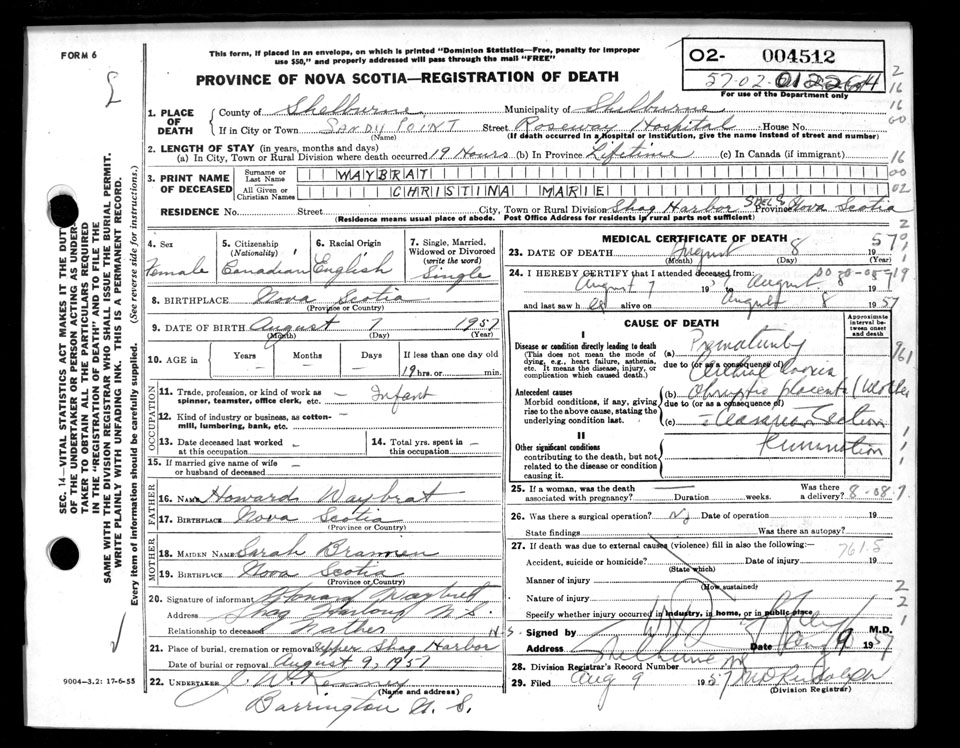 FORM 6
This form, if placed in an envelope, on which is printed "Dominion Statistics—Free, penalty for improper
use $50," and properly addressed will pass through the mail "FREE"
PROVINCE OF NOVA SCOTIA—REGISTRATION OF DEATH
O2- 004512
57-02-
For use of the Department only
SEC. 14—VITAL STATISTICS ACT MAKES IT THE DUTY
OF THE UNDERTAKER OR PERSON ACTING AS UNDER-
TAKER TO OBTAIN ALL THE PARTICULARS REQUIRED
IN THE "REGISTRATION OF DEATH" AND TO FILE THE
SAME WITH THE DIVISION REGISTRAR WHO SHALL ISSUE THE BURIAL PERMIT.
WRITE PLAINLY WITH UNFADING INK. THIS IS A PERMANENT RECORD.
Every item of information should be carefully supplied. (See reverse side for instructions.)
1. PLACE OF DEATH County of Shelburne, Municipality of Shelburne
If in City or Town SANDY POINT Street Roseway Hospital House No.
(Name) (If death occurred in a hospital or institution, give the name instead of street and number)
2. LENGTH OF STAY (in years, months and days)
(a) In City, Town or Rural Division where death occurred 19 Hours (b) In Province Lifetime (c) In Canada (if immigrant)
3. PRINT NAME OF DECEASED Surname or Last Name WAYBRAT
All Given or Christian Names CHRISTINA MARIE
RESIDENCE No. Street City, Town or Rural Division Shag Harbor Shel Co Province Nova Scotia
(Residence means usual place of abode. Post Office Address for residents in rural parts not sufficient)
4. Sex Female
5. Citizenship (Nationality) Canadian
6. Racial Origin English
7. Single, Married, Widowed or Divorced (write the word) Single
8. BIRTHPLACE Nova Scotia
(Province or Country)
9. DATE OF BIRTH August 7 1957
(Month) (Day) (Year)
10. AGE in Years Months Days If less than one day old
— — — 19 hrs. or min.
OCCUPATION
11. Trade, profession, or kind of work as spinner, teamster, office clerk, etc. — Infant
12. Kind of industry or business, as cotton-mill, lumbering, bank, etc. —
13. Date deceased last worked at this occupation —
14. Total yrs. spent in this occupation —
15. If married give name of wife or husband of deceased —
FATHER
16. NAME Howard Waybrat
17. BIRTHPLACE Nova Scotia
(Province or Country)
MOTHER
18. MAIDEN NAME Sarah
19. BIRTHPLACE Nova Scotia
(Province or Country)
20. Signature of informant Howard Waybret
Address Shag Harbour N.S.
Relationship to deceased Father
21. Place of burial, cremation or removal Upper Shag Harbor N.S.
Date of burial or removal August 9, 1957
22. UNDERTAKER J. W. Kenney
(Name and address)
Barrington N.S.
9004-3.2: 17-6-55
MEDICAL CERTIFICATE OF DEATH
23. DATE OF DEATH August 8 1957
(Month) (Day) (Year)
24. I HEREBY CERTIFY that I attended deceased from:
August 7 1957 to August 8 1957
and last saw h er alive on August 8 1957
CAUSE OF DEATH
Approximate interval between onset and death
I
Disease or condition directly leading to death
(This does not mean the mode of dying, e.g., heart failure, asthenia, etc. It means the disease, injury, or complication which caused death.)
(a) Prematurity
due to (or as a consequence of)
Antecedent causes
Morbid conditions, if any, giving rise to the above cause, stating the underlying condition last.
(b) placenta (Mother
due to (or as a consequence of)
(c) Section
II
Other significant conditions
contributing to the death, but not related to the disease or condition causing it.
25. If a woman, was the death associated with pregnancy? — Duration weeks. Was there a delivery?
26. Was there a surgical operation? No Date of operation 19
State findings Was there an autopsy?
27. If death was due to external causes (violence) fill in also the following:—
761.5
Accident, suicide or homicide? Date of injury 19
(State which)
Manner of injury
(How sustained)
Nature of injury
Specify whether injury occurred in industry, in home, or in public place
Signed by M.D.
Address Shelburne Date Aug 9 1957
28. Division Registrar's Record Number
29. Filed Aug 9 1957
(Division Registrar)